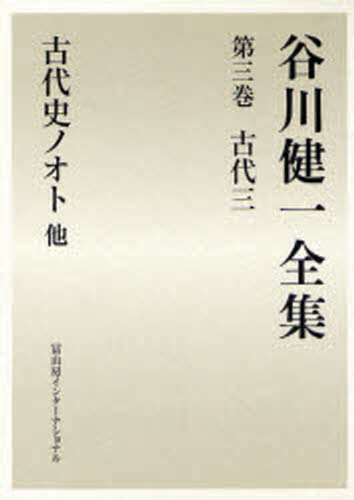 谷川健一全集
第三巻 古代三
古代史ノオト 他
冨山房インターナショナル